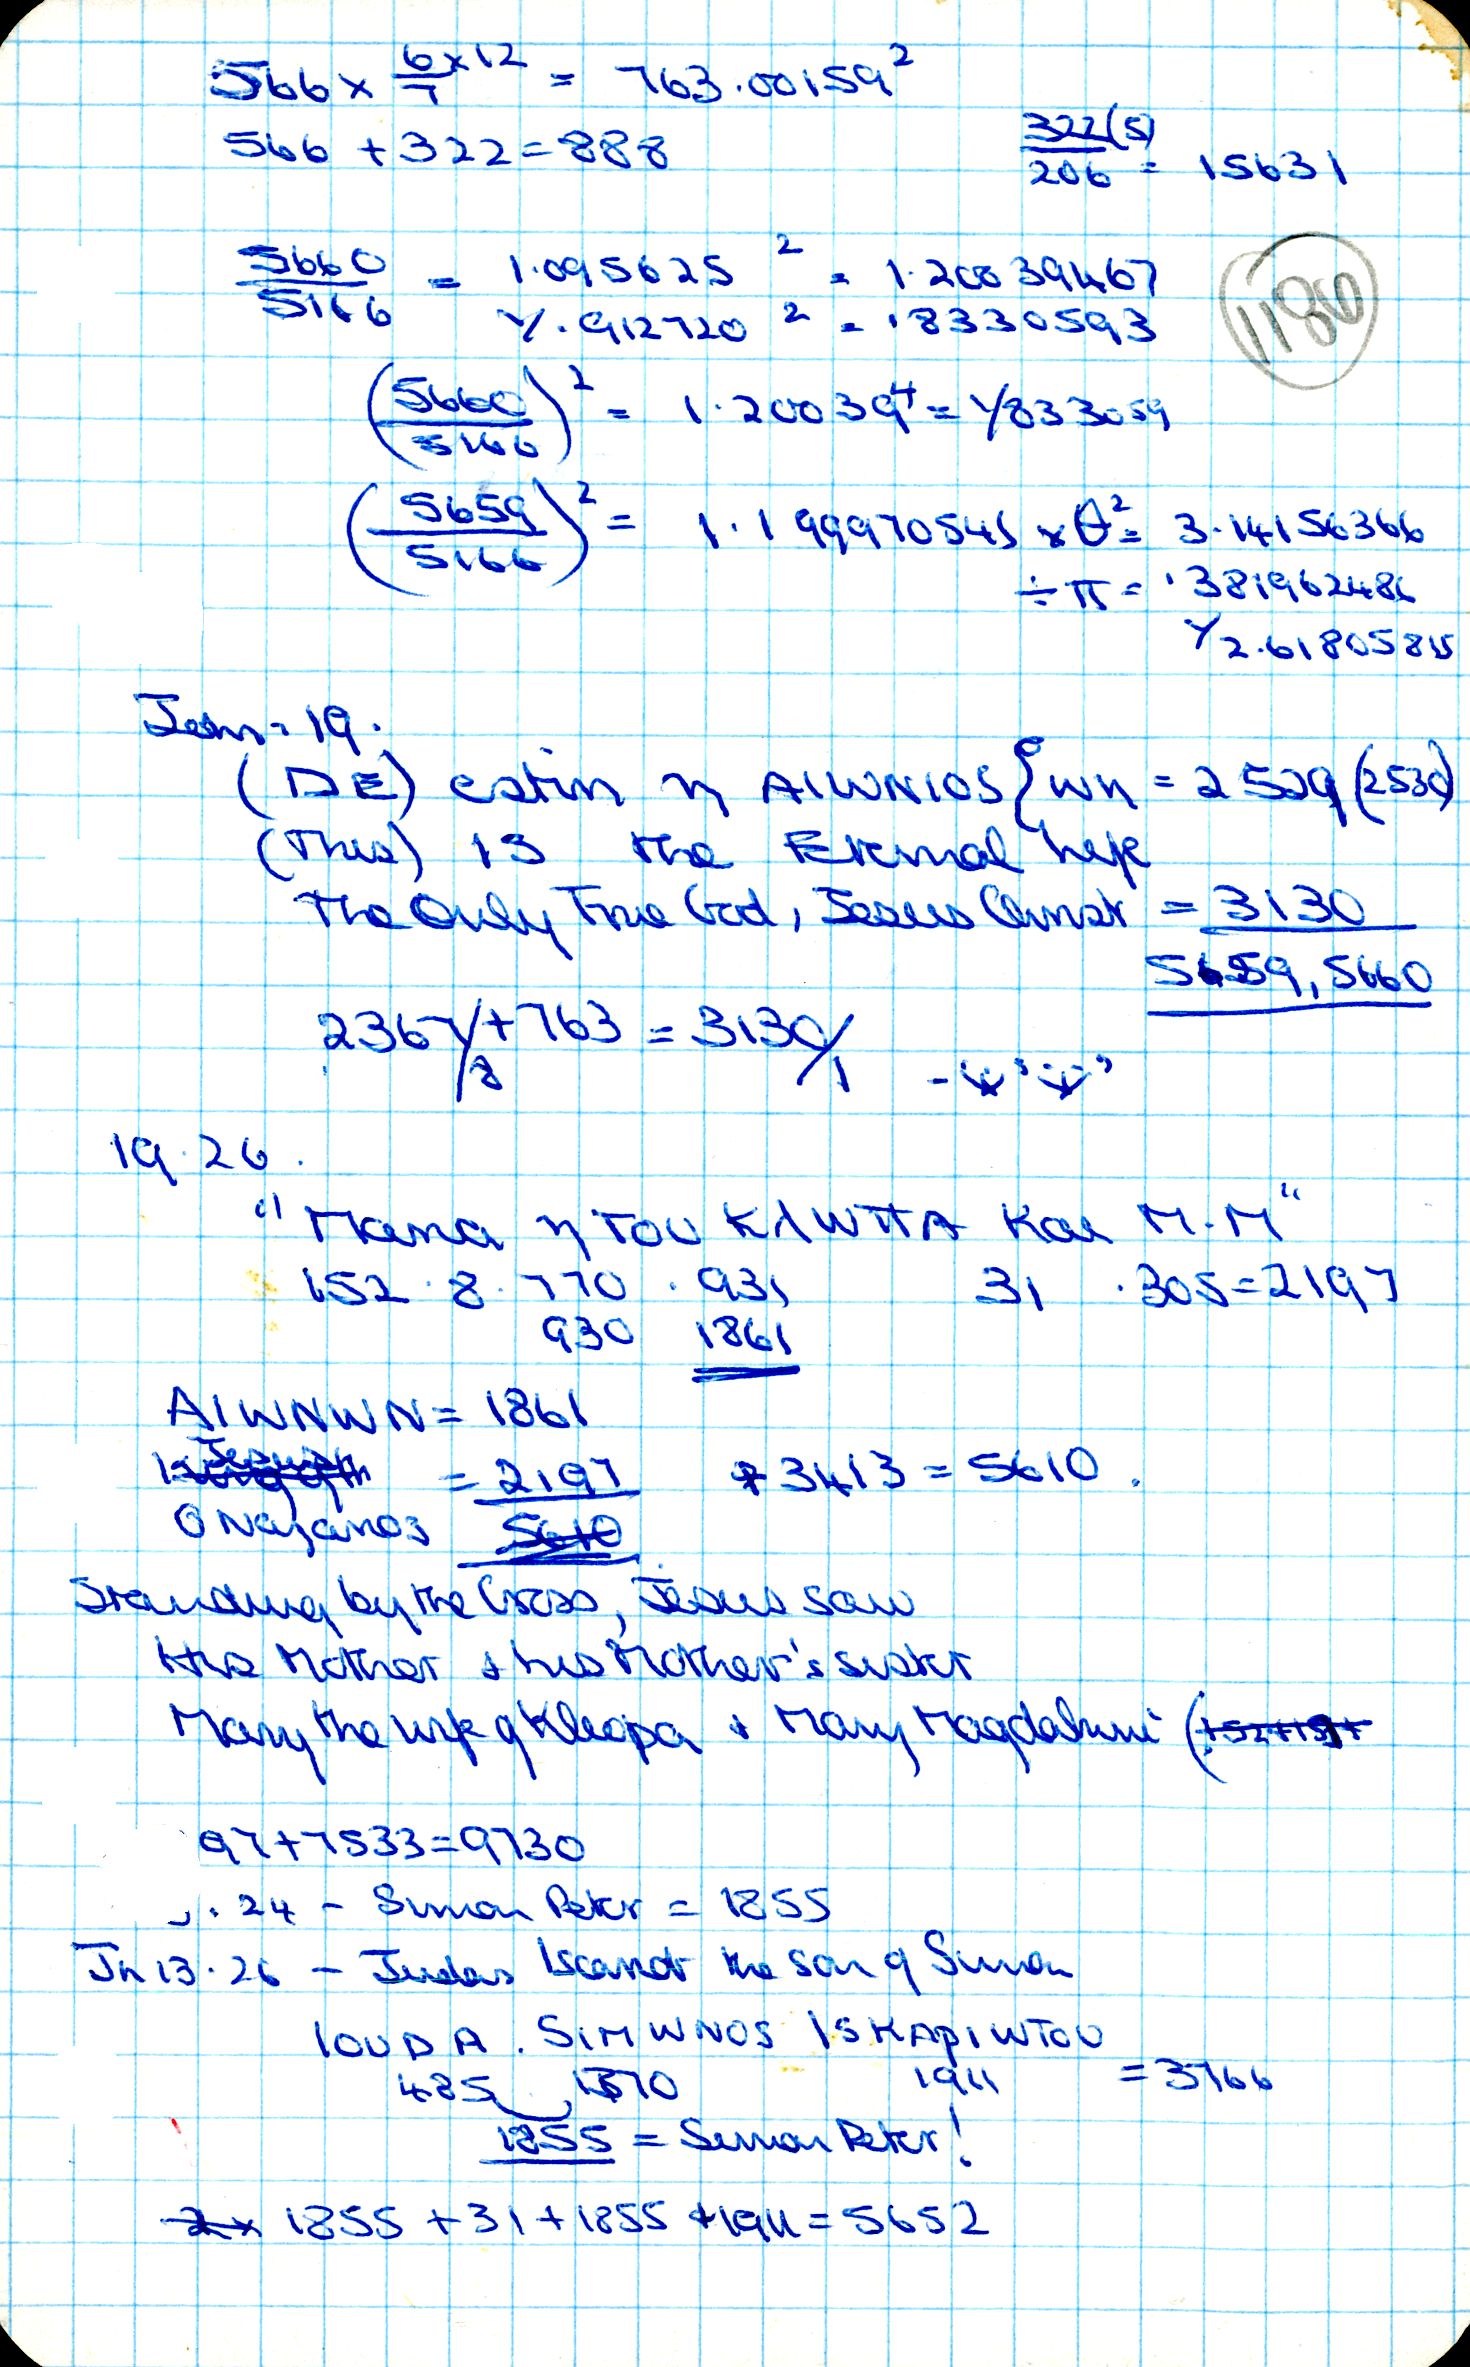 566 × 6×12/7 = 763.00159²
566 + 322 = 888
322(5)/206 = 15631
1180
5660/5166 = 1.095625² = 1.20039467
Y.912720² = .8330593
(5660/5166)² = 1.20039⁴ = Y833059
(5659/5166)² = 1.199970545 × θ² = 3.14156366
÷ π = .381962486
Y2.61805815
John = 19.
(DE) estin η AIWNIOS ζwη = 2529 (2530)
(This) is the Eternal life
The Only True God, Jesus Christ = 3130
5659, 5660
2367/8 + 763 = 3130/1
19.26.
"Maria η TOU KλWΠA Kai M.M"
152 . 8 . 770 . 931 31 . 305 = 2197
930 1861
AIWNWN = 1861
= 2197 + 3413 = 5610.
O Nazarios 5610
Standing by the Cross, Jesus saw
His Mother + his Mother's sister
Mary the wife of Kleopa + Mary Magdaleni (
97 + 7533 = 9730
. 24 – Simon Peter = 1855
Jn 13.26 – Judas Iscariot the son of Simon
IOUDA . SIMWNOS ISKAPIWTOU
485 1370 1911 = 3766
1855 = Simon Peter!
2× 1855 + 31 + 1855 + 1911 = 5652